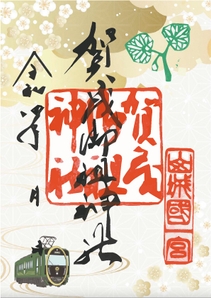 賀茂御祖神社
令和 年 月 日
賀茂御祖神社
山城國一宮